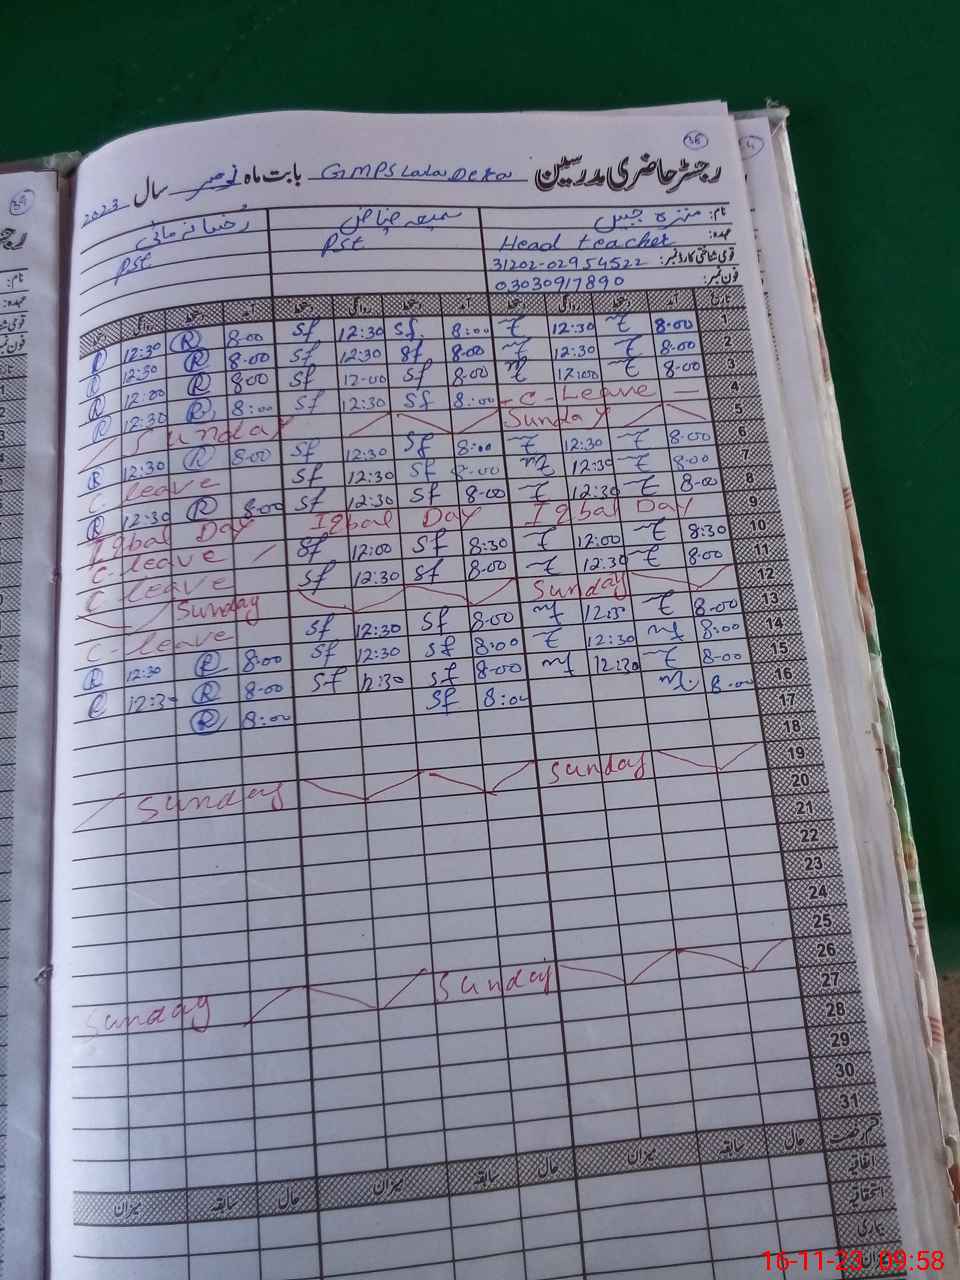 36
رجسٹر حاضری مدرسین GMPS Lala Dera بابت ماہ نومبر سال 2023
نام:
عہدہ: Head teacher Pst Pst
قومی شناختی کارڈ نمبر: 31202-02954522
فون نمبر: 03030917890
تاریخ آمد دستخط روانگی دستخط آمد دستخط روانگی دستخط آمد دستخط روانگی دستخط
1 8:00 12:30 8:00 Sf 12:30 Sf 8:00 R 12:30
2 8:00 12:30 8:00 Sf 12:30 Sf 8:00 R 12:30
3 8:00 12:00 8:00 Sf 12:00 Sf 8:00 R 12:00 R
4 C-Leave 8:00 Sf 12:30 Sf 8:00 R 12:30 R
5 Sunday Sunday
6 8:00 12:30 8:00 Sf 12:30 Sf 8:00 R 12:30 R
7 8:00 12:30 8:00 Sf 12:30 Sf C-leave
8 8:00 12:30 8:00 Sf 12:30 Sf 8:00 R 12:30 R
9 Iqbal Day Iqbal Day Iqbal Day
10 8:30 12:00 8:30 Sf 12:00 Sf C-leave
11 8:00 12:30 8:00 Sf 12:30 Sf C-leave
12 Sunday Sunday
13 8:00 12:30 8:00 Sf 12:30 Sf C-leave
14 8:00 12:30 8:00 Sf 12:30 Sf 8:00 R 12:30 R
15 8:00 12:30 8:00 Sf 12:30 Sf 8:00 R 12:30
16 8:00 8:00 Sf 8:00 R
17
18
19 Sunday Sunday
20
21
22
23
24
25
26 Sunday Sunday
27
28
29
30
31
قسم رخصت حال سابقہ میزان حال سابقہ میزان حال سابقہ میزان
اتفاقیہ
استحقاقیہ
بیماری
16-11-23 09:58